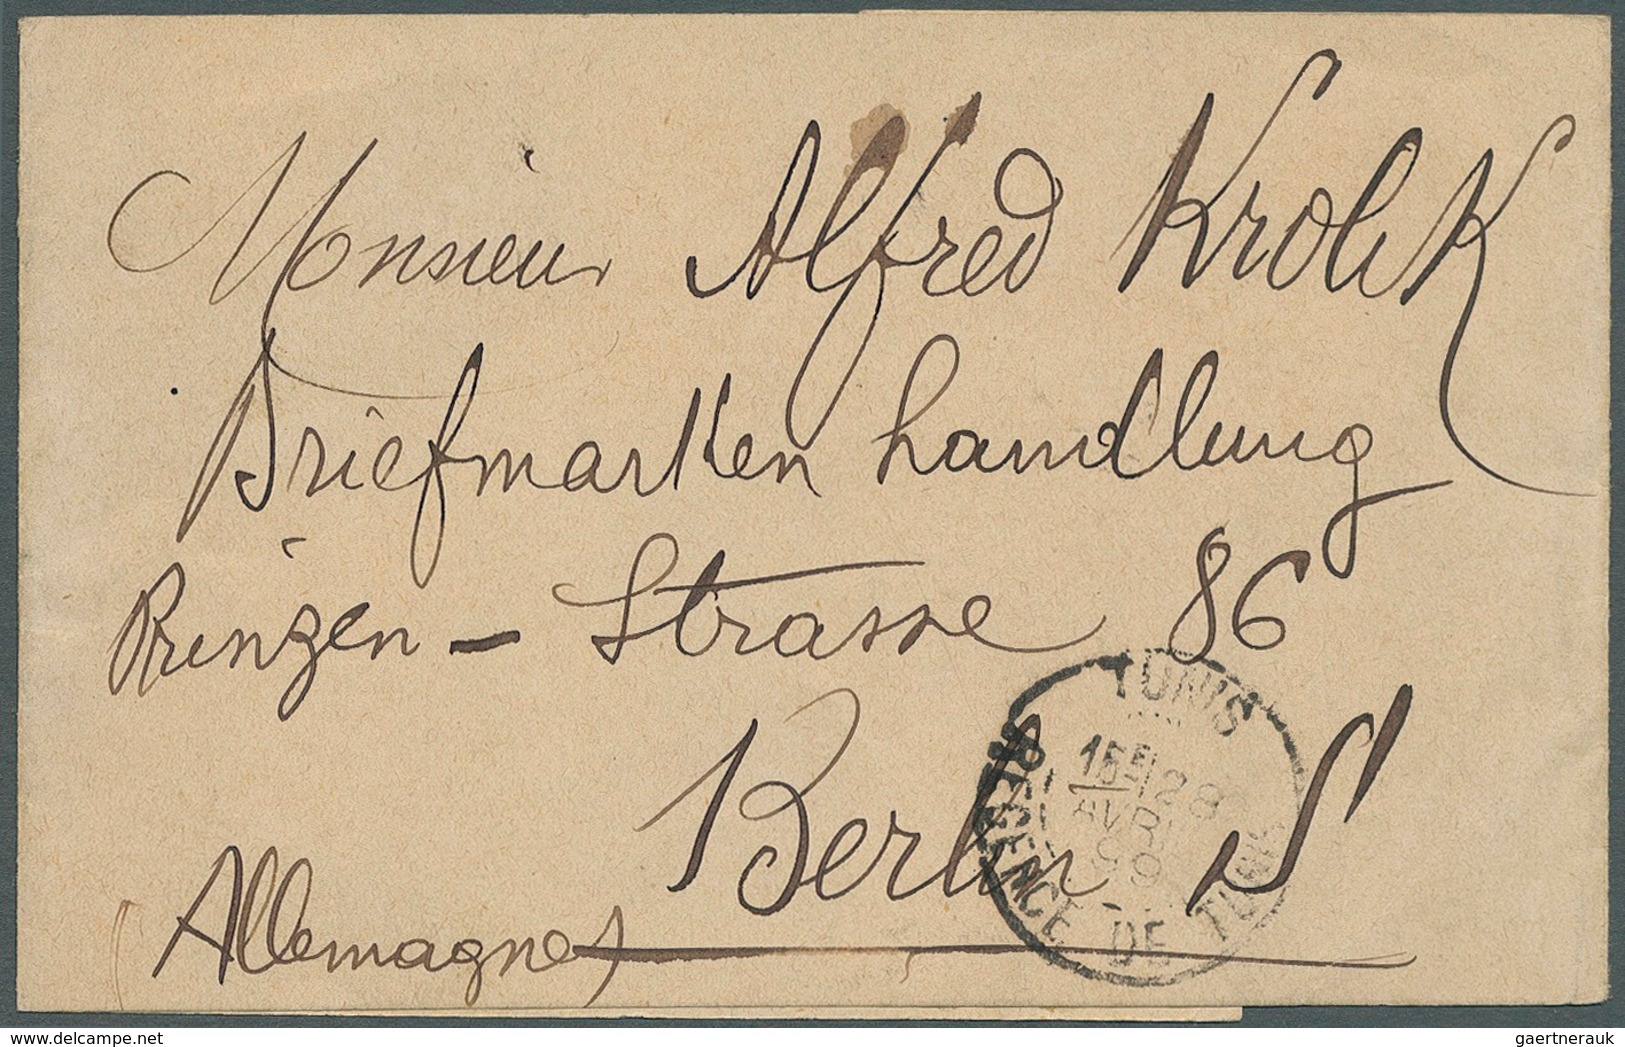 Monsieur Alfred Krolik
Briefmarken handlung
Prinzen - Strasse 86
Berlin S
(Allemagne)
TUNIS
15 28
AVRIL
99
REGENCE DE TUNIS
delcampe.net
gaertnerauk